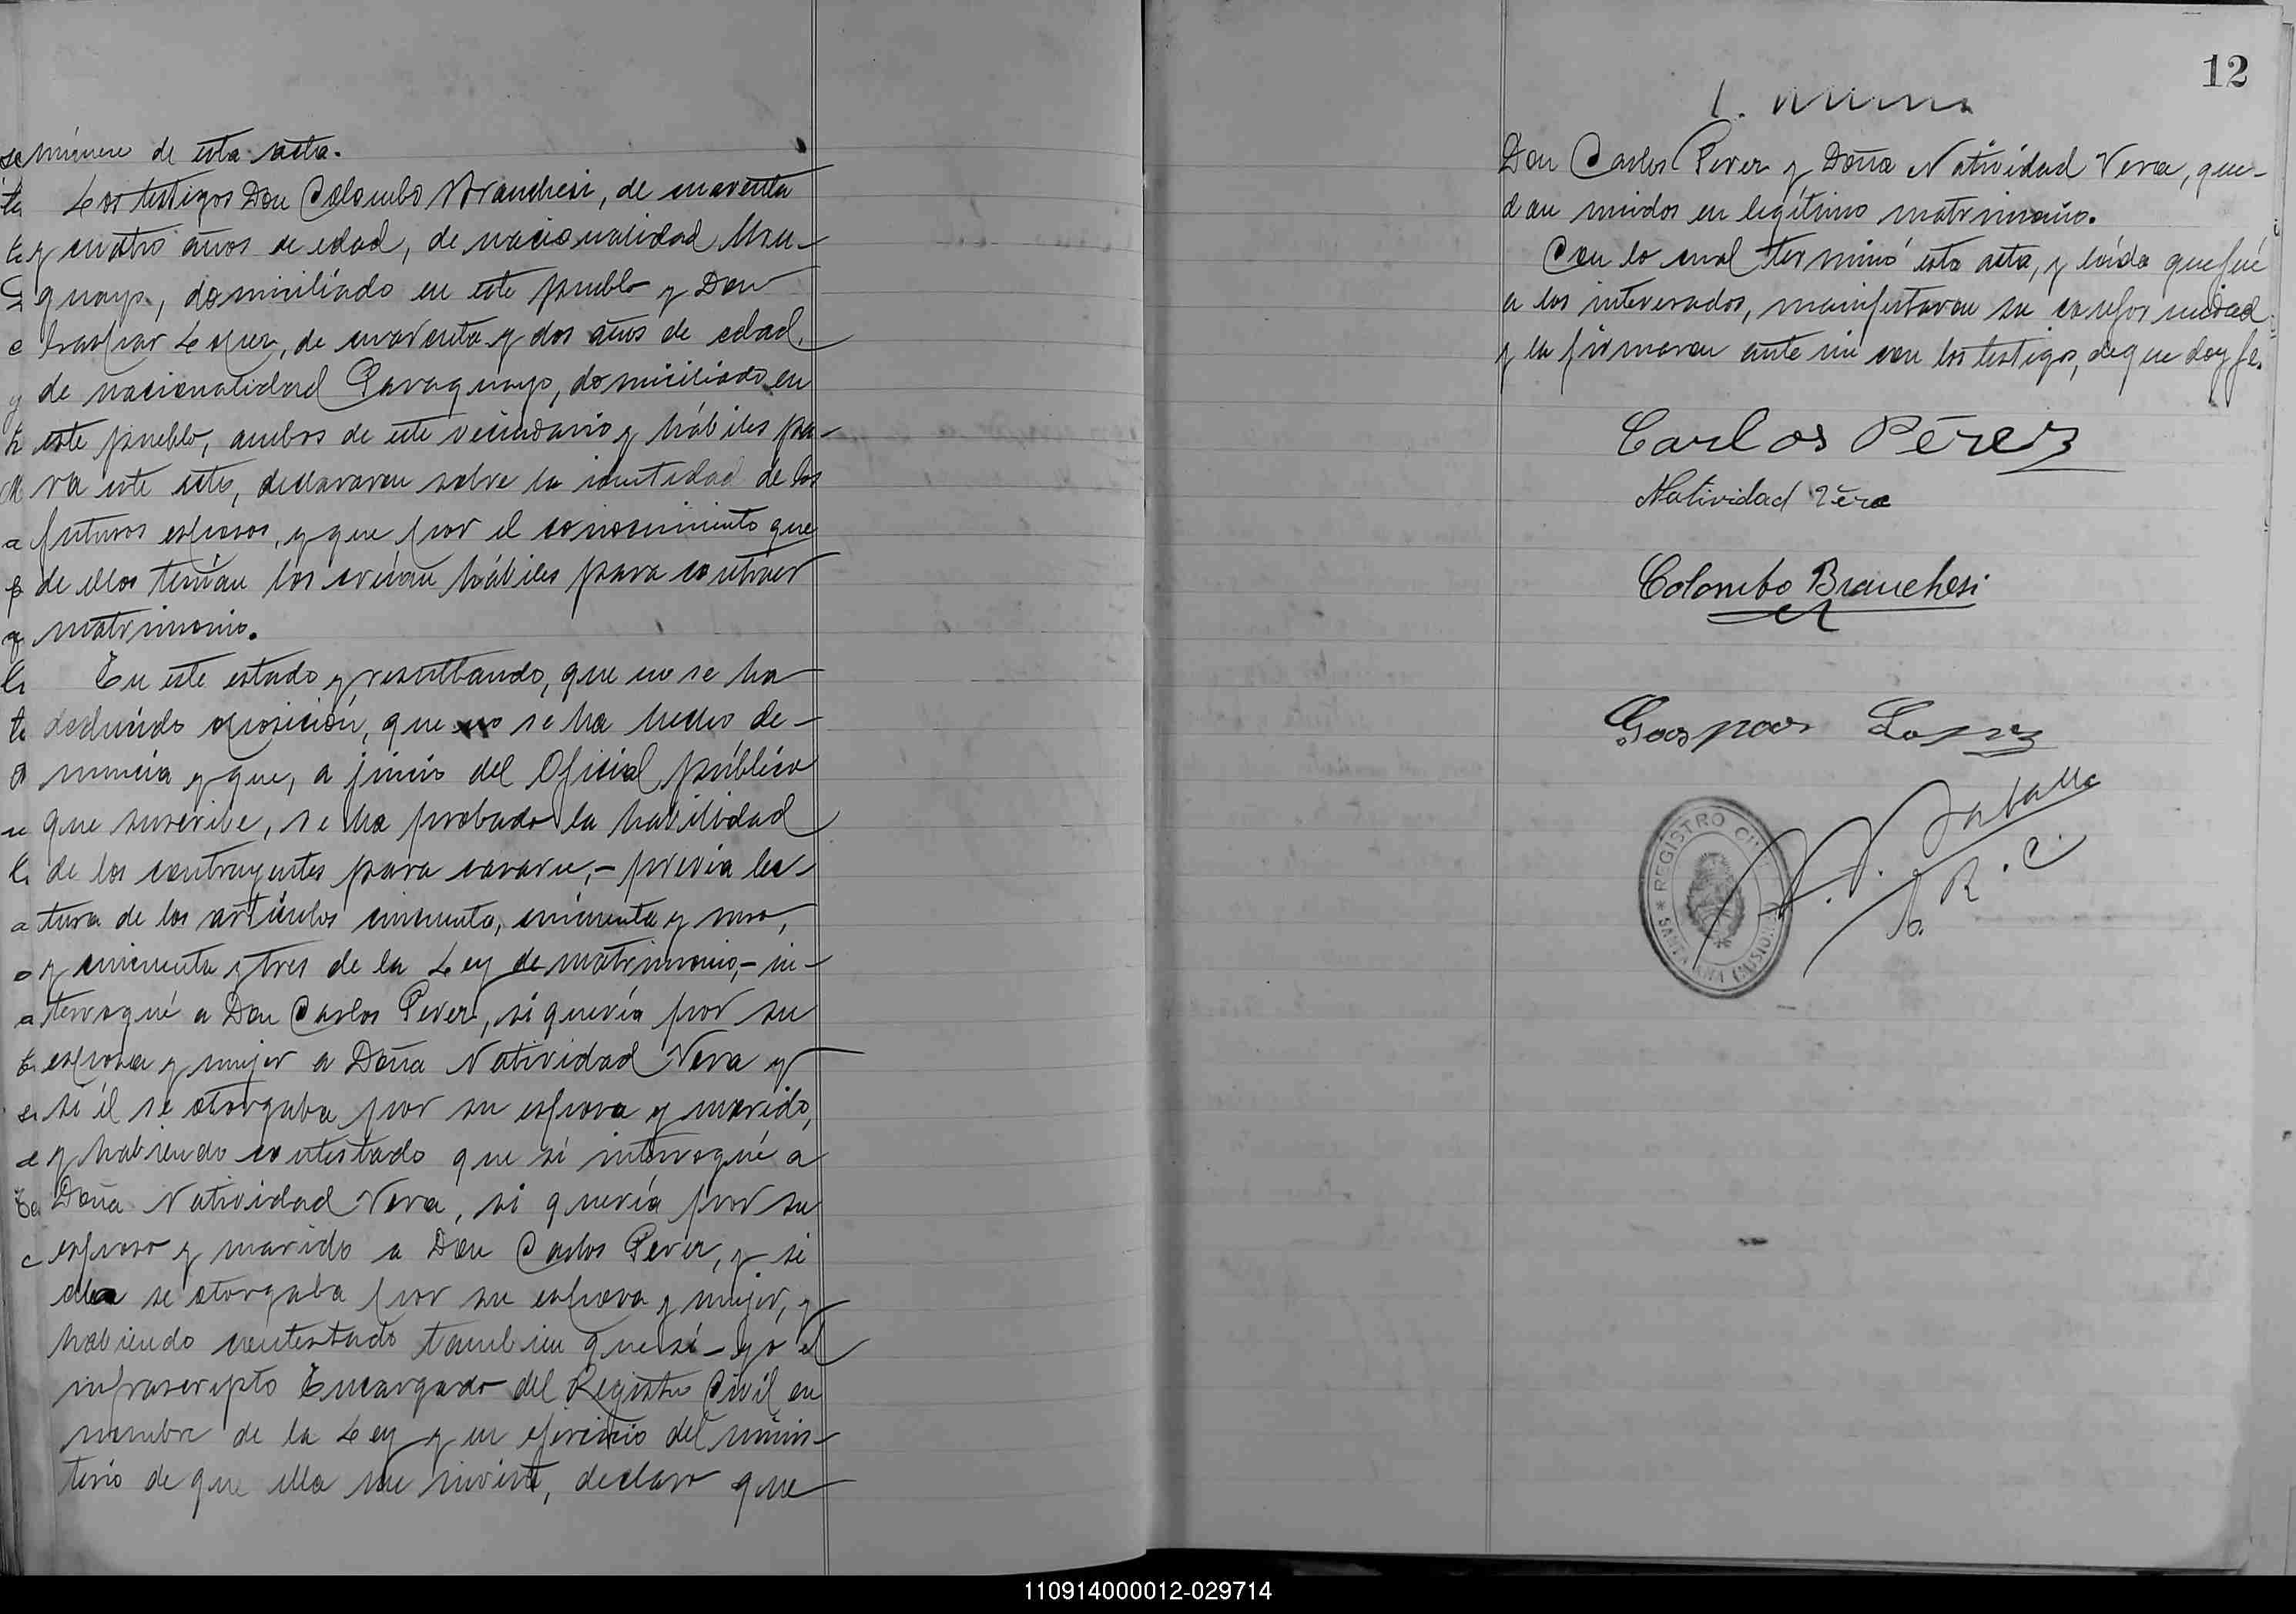 número de esta acta.
Los testigos Don Colombo Branchesi, de cuarenta
y cuatro años de edad, de nacionalidad Uru-
guayo, domiciliado en este pueblo y Don
Gaspar Lopez, de cuarenta y dos años de edad,
de nacionalidad Paraguayo, domiciliado en
este pueblo, ambos de este vecindario y hábiles pa-
ra este acto, declararon sobre la identidad de los
futuros esposos, y que por el conocimiento que
de ellos tenían los creían hábiles para contraer
matrimonio.
En este estado y resultando, que no se ha
deducido oposición, que no se ha hecho de-
nuncia y que, a juicio del Oficial público
que suscribe, se ha probado la habilidad
de los contrayentes para casarse,- previa lec-
tura de los artículos cincuenta, cincuenta y uno,
y cincuenta y tres de la Ley de matrimonio,- in-
terrogué a Don Carlos Perez, si quería por su
esposa y mujer a Doña Natividad Vera y
si él se otorgaba por su esposo y marido,
y habiendo contestado que sí interrogué a
Doña Natividad Vera, si quería por su
esposo y marido a Don Carlos Perez, y si
ella se otorgaba por su esposa y mujer, y
habiendo contestado tambien que sí - yo el
infrascripto Encargado del Registro Civil en
nombre de la Ley y en ejercicio del minis-
terio de que ella me inviste, declaro que
12
Don Carlos Perez y Doña Natividad Vera, que-
dan unidos en legítimo matrimonio.
Con lo cual terminó esta acta, y leída que fué
a los interesados, manifestaron su conformidad
y la firmaron ante mi con los testigos, de que doy fe.
Carlos Pérez
Natividad Vera
Colombo Branchesi
Gaspar Lopez
REGISTRO CIVIL
SANTA ANA (MISIONES)
E. R. C.
110914000012-029714